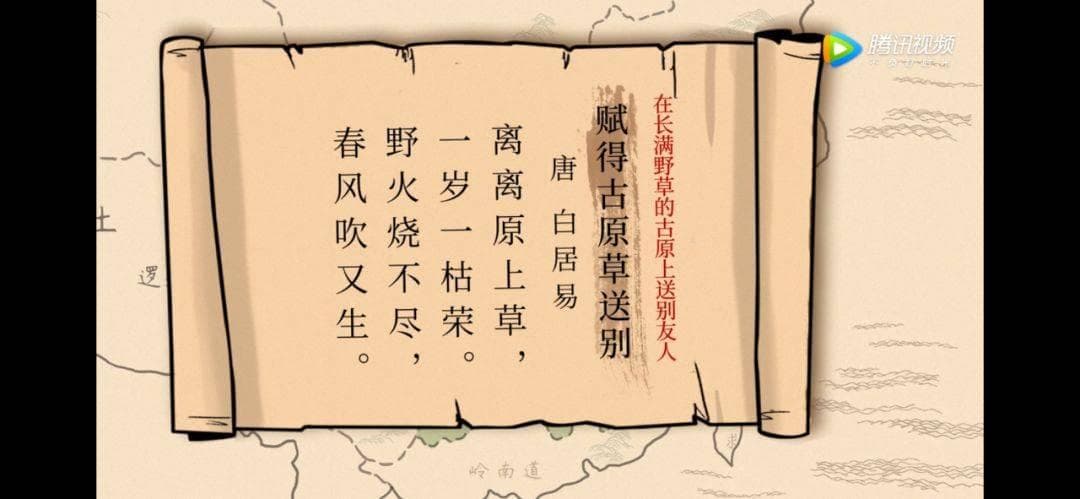 在长满野草的古原上送别友人
赋得古原草送别
唐 白居易
离离原上草，
一岁一枯荣。
野火烧不尽，
春风吹又生。
腾讯视频
土
逻
岭南道